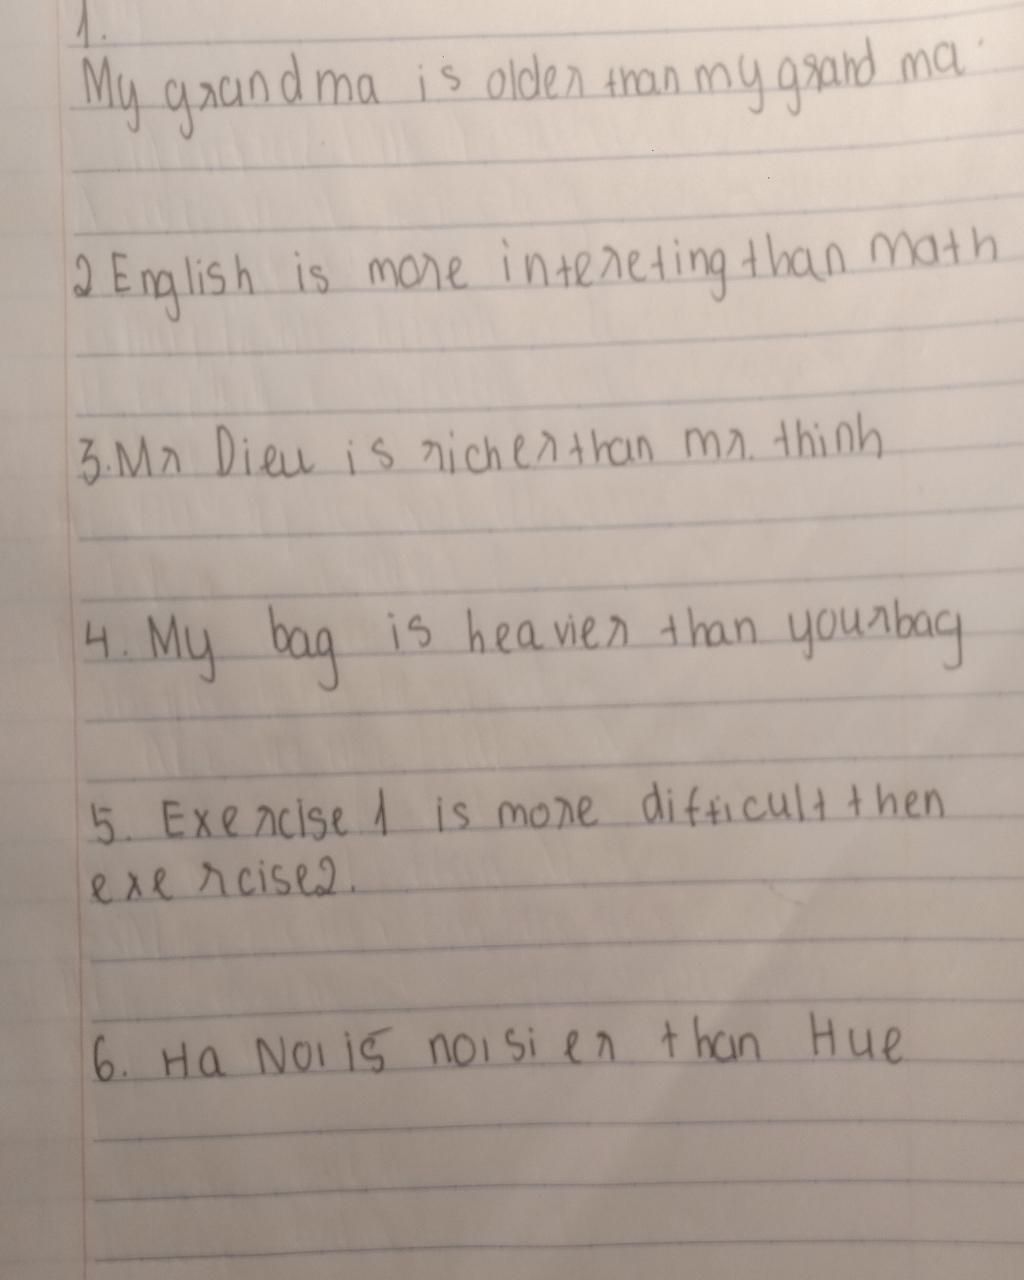 1.
My grandma is older than my grand ma.
2 English is more intereting than math
3. Mr Dieu is richer than mr. thinh
4. My bag is heavier than your bag
5. Exercise 1 is more difficult then
exercise 2.
6. Ha Noi is noisier than Hue